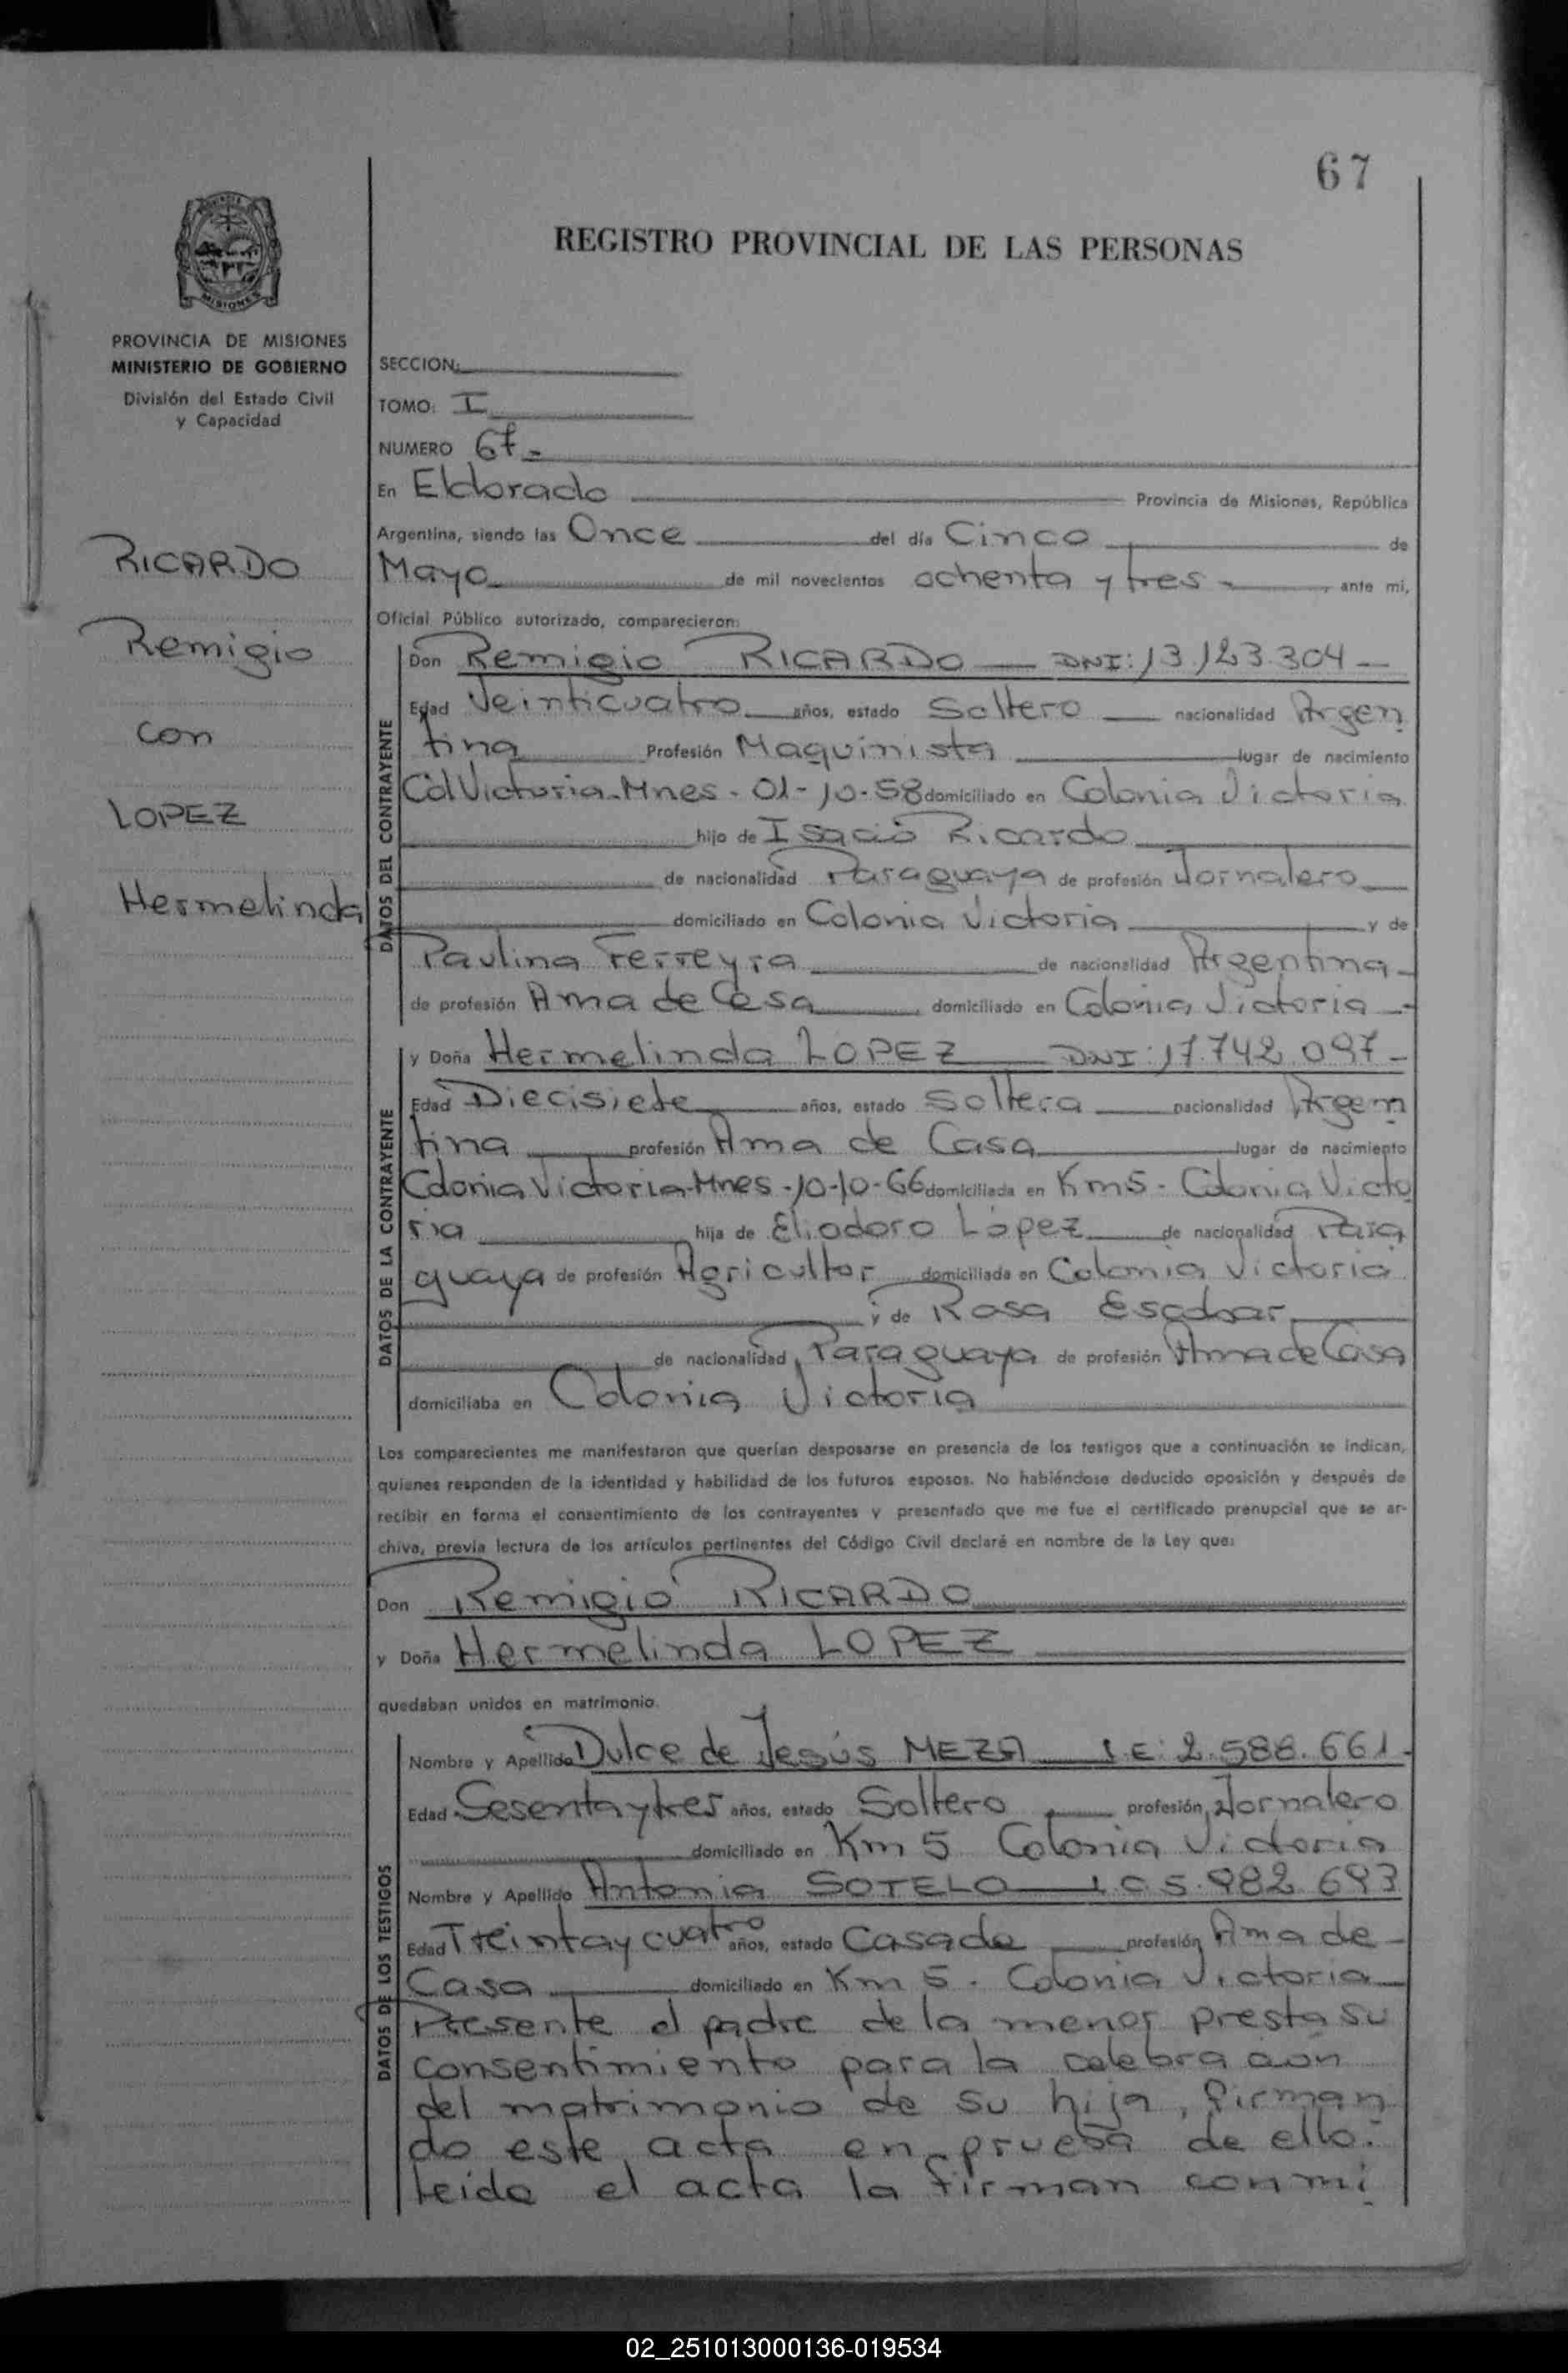 67
REGISTRO PROVINCIAL DE LAS PERSONAS
MISIONES
PROVINCIA DE MISIONES
MINISTERIO DE GOBIERNO
División del Estado Civil
y Capacidad
RICARDO
Remigio
con
LOPEZ
Hermelinda
SECCION:
TOMO: I
NUMERO 67-
En Eldorado Provincia de Misiones, República
Argentina, siendo las Once del día Cinco de
Mayo de mil novecientos ochenta y tres - , ante mi,
Oficial Público autorizado, comparecieron:
DATOS DEL CONTRAYENTE
Don Remigio RICARDO — DNI: 13.123.304 —
Edad Veinticuatro años, estado Soltero nacionalidad Argen
tina Profesión Maquinista lugar de nacimiento
Col Victoria-Mnes - 01-10-58 domiciliado en Colonia Victoria
hijo de Isacio Ricardo
de nacionalidad Paraguaya de profesión Jornalero
domiciliado en Colonia Victoria y de
Paulina Ferreyra de nacionalidad Argentina
de profesión Ama de Casa domiciliado en Colonia Victoria -
DATOS DE LA CONTRAYENTE
y Doña Hermelinda LOPEZ DNI: 17.742.097-
Edad Diecisiete años, estado Soltera nacionalidad Argen
tina profesión Ama de Casa lugar de nacimiento
Colonia Victoria-Mnes -10-10-66 domiciliada en Km5 - Colonia Victo
ria hija de Eliodoro López de nacionalidad Para
guaya de profesión Agricultor domiciliada en Colonia Victoria
y de Rosa Escobar
de nacionalidad Paraguaya de profesión Ama de Casa
domiciliaba en Colonia Victoria
Los comparecientes me manifestaron que querían desposarse en presencia de los testigos que a continuación se indican,
quienes responden de la identidad y habilidad de los futuros esposos. No habiéndose deducido oposición y después de
recibir en forma el consentimiento de los contrayentes y presentado que me fue el certificado prenupcial que se ar-
chiva, previa lectura de los artículos pertinentes del Código Civil declaré en nombre de la Ley que:
Don Remigio RICARDO
y Doña Hermelinda LOPEZ
quedaban unidos en matrimonio.
DATOS DE LOS TESTIGOS
Nombre y Apellido Dulce de Jesús MEZA L.E: 2.588.661-
Edad Sesenta y tres años, estado Soltero profesión Jornalero
domiciliado en Km 5 Colonia Victoria
Nombre y Apellido Antonia SOTELO L.C. 5.982.693
Edad Treinta y cuatro años, estado Casada profesión Ama de
Casa domiciliado en Km 5 - Colonia Victoria
Presente el padre de la menor presta su
consentimiento para la celebración
del matrimonio de su hija, firman
do este acta en prueba de ello.-
Leida el acta la firman con mi
02_251013000136-019534